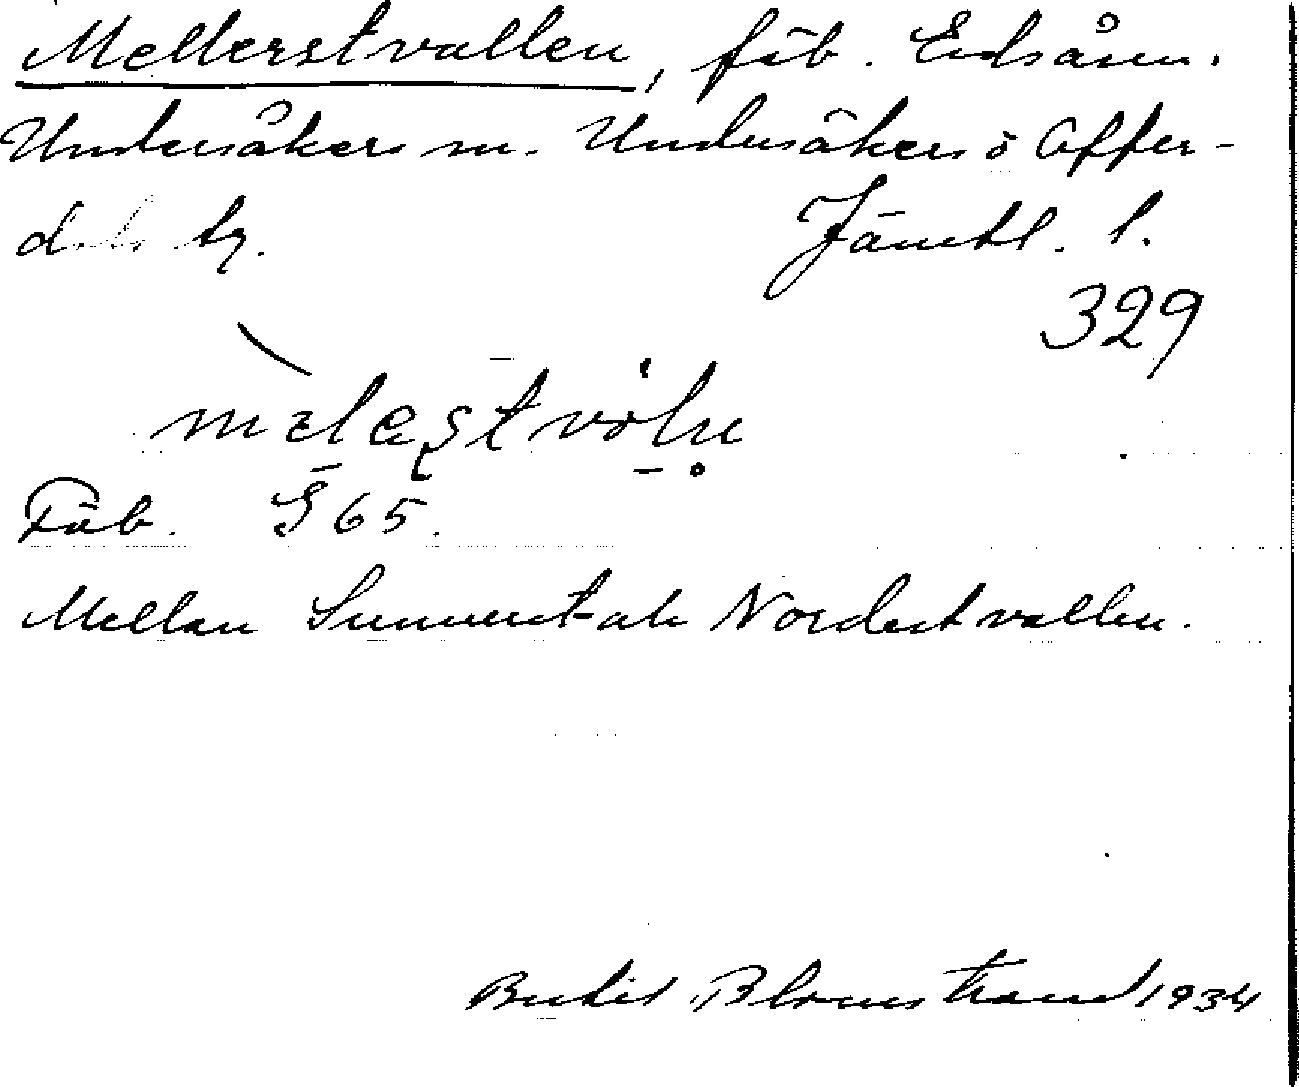 Mellerstvallen, fäb. Edsåsen.
Undersåkers sn. Undersåkers o Offer-
dals tg. Jämtl. l.
329
Fäb. S 65.
Mellan Sunnerst- och Nordestvallen.
Bertil Blomstrand 1934